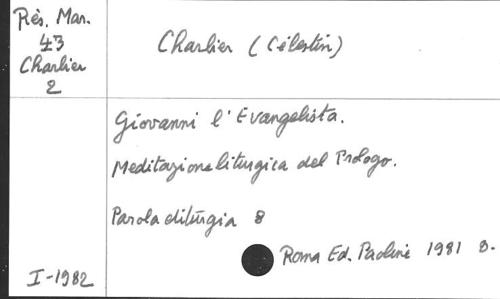 Rès. Mar.
43
Charlier
2
Charlier (Célestin)
Giovanni l'Evangelista.
Meditazione liturgica del Prologo.
Parola diliturgia 8
Roma Ed. Paoline 1981 8.
I-1982